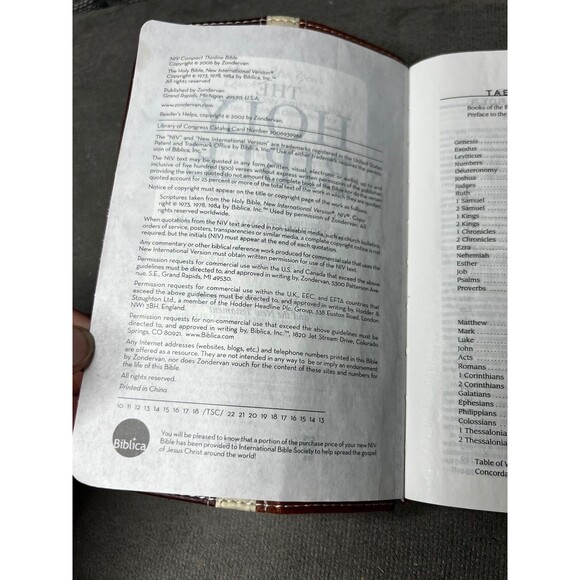 NIV Compact Thinline Bible
Copyright © 2006 by Zondervan
The Holy Bible, New International Version®
Copyright © 1973, 1978, 1984 by Biblica, Inc.™
All rights reserved
Published by Zondervan
Grand Rapids, Michigan 49530, U.S.A.
www.zondervan.com
Reader's Helps, copyright © 2002 by Zondervan
Library of Congress Catalog Card Number 2006939986
The "NIV" and "New International Version" are trademarks registered in the United States
Patent and Trademark Office by Biblica, Inc.™ Use of either trademark requires the permis-
sion of Biblica, Inc.™
The NIV text may be quoted in any form (written, visual, electronic or audio), up to and
inclusive of five hundred (500) verses without express written permission of the publisher,
providing the verses quoted do not amount to a complete book of the Bible nor do the verses
quoted account for 25 percent or more of the total text of the work in which they are quoted.
Notice of copyright must appear on the title or copyright page of the work as follows:
Scriptures taken from the Holy Bible, New International Version®, NIV®. Copy-
right © 1973, 1978, 1984 by Biblica, Inc.™ Used by permission of Zondervan. All
rights reserved worldwide.
When quotations from the NIV text are used in non-salable media, such as church bulletins,
orders of service, posters, transparencies or similar media, a complete copyright notice is not
required, but the initials (NIV) must appear at the end of each quotation.
Any commentary or other biblical reference work produced for commercial sale that uses the
New International Version must obtain written permission for use of the NIV text.
Permission requests for commercial use within the U.S. and Canada that exceed the above
guidelines must be directed to, and approved in writing by, Zondervan, 5300 Patterson Ave-
nue. S.E., Grand Rapids, MI 49530.
Permission requests for commercial use within the U.K., EEC, and EFTA countries that
exceed the above guidelines must be directed to, and approved in writing by, Hodder &
Stoughton Ltd., a member of the Hodder Headline Plc. Group, 338 Euston Road, London
NW1 3BH, England.
Permission requests for non-commercial use that exceed the above guidelines must be
directed to, and approved in writing by, Biblica, Inc.™, 1820 Jet Stream Drive, Colorado
Springs, CO 80921. www.Biblica.com
Any Internet addresses (websites, blogs, etc.) and telephone numbers printed in this Bible
are offered as a resource. They are not intended in any way to be or imply an endorsement
by Zondervan, nor does Zondervan vouch for the content of these sites and numbers for
the life of this Bible.
All rights reserved.
Printed in China.
10 11 12 13 14 15 16 17 18 /TSC/ 22 21 20 19 18 17 16 15 14 13
Biblica
You will be pleased to know that a portion of the purchase price of your new NIV
Bible has been provided to International Bible Society to help spread the gospel
of Jesus Christ around the world!
Books of the B
Preface to the
Genesis
Exodus
Leviticus
Numbers
Deuteronomy
Joshua
Judges
Ruth
1 Samuel
2 Samuel
1 Kings
2 Kings
1 Chronicles
2 Chronicles
Ezra
Nehemiah
Esther
Job
Psalms
Proverbs
Matthew
Mark
Luke
John
Acts
Romans
1 Corinthians
2 Corinthians
Galatians
Ephesians
Philippians
Colossians
1 Thessalonia
2 Thessalonia
Table of W
Concorda